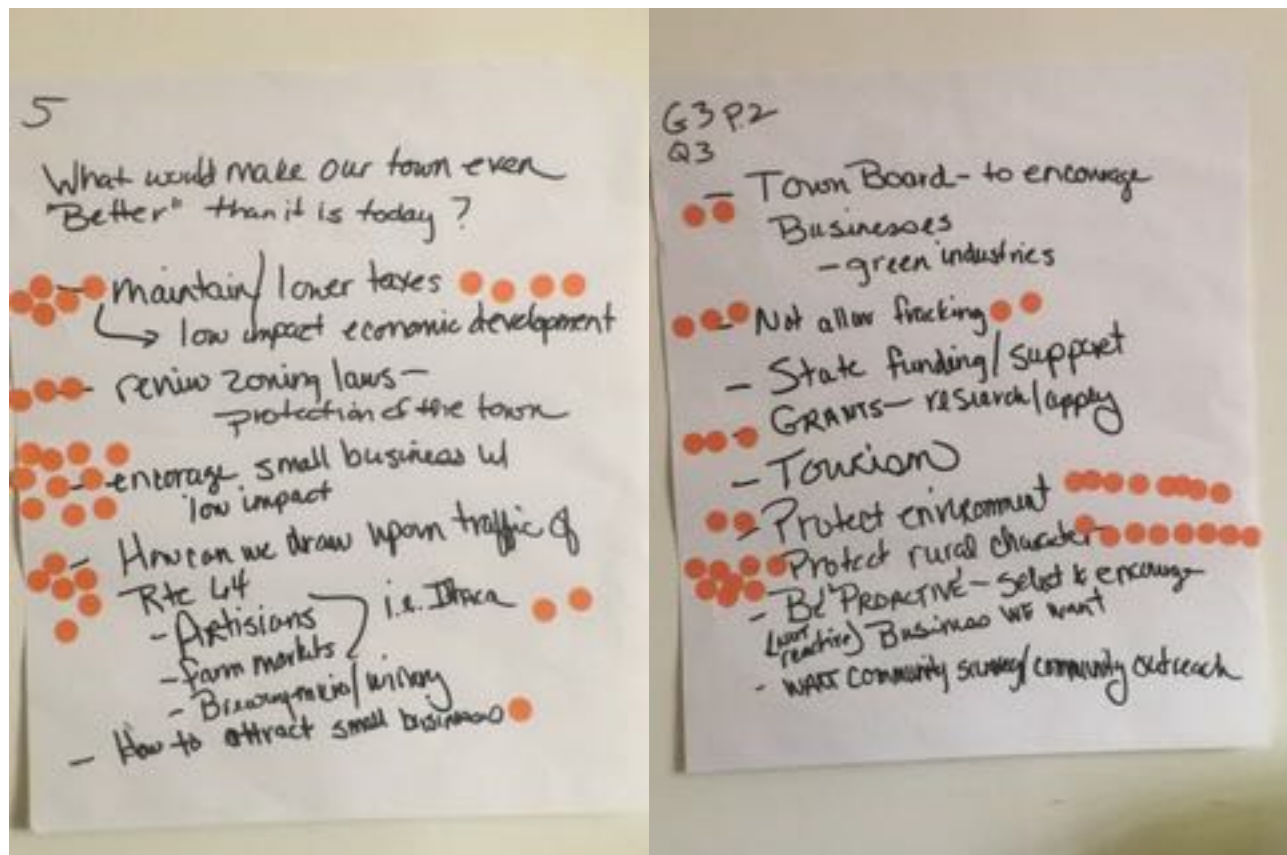 5
What would make our town even
"Better" than it is today?
- maintain/lower taxes
low impact economic development
- review zoning laws -
- protection of the town
- encorage small business w/
low impact
- How can we draw upon traffic of
Rte 64
- Artisians
- farm markets
i.e. Ithaca
- Brewery / winery
- How to attract small business
G3 P.2
Q3
- Town Board - to encourage
Businesses
- green industries
- Not allow fracking
- State funding/support
- GRANTS - research/apply
- Tourism
- Protect environment
Protect rural character
- Be PROACTIVE - select & encourage
(not reactive) Business WE want
- WANT community survey/community outreach